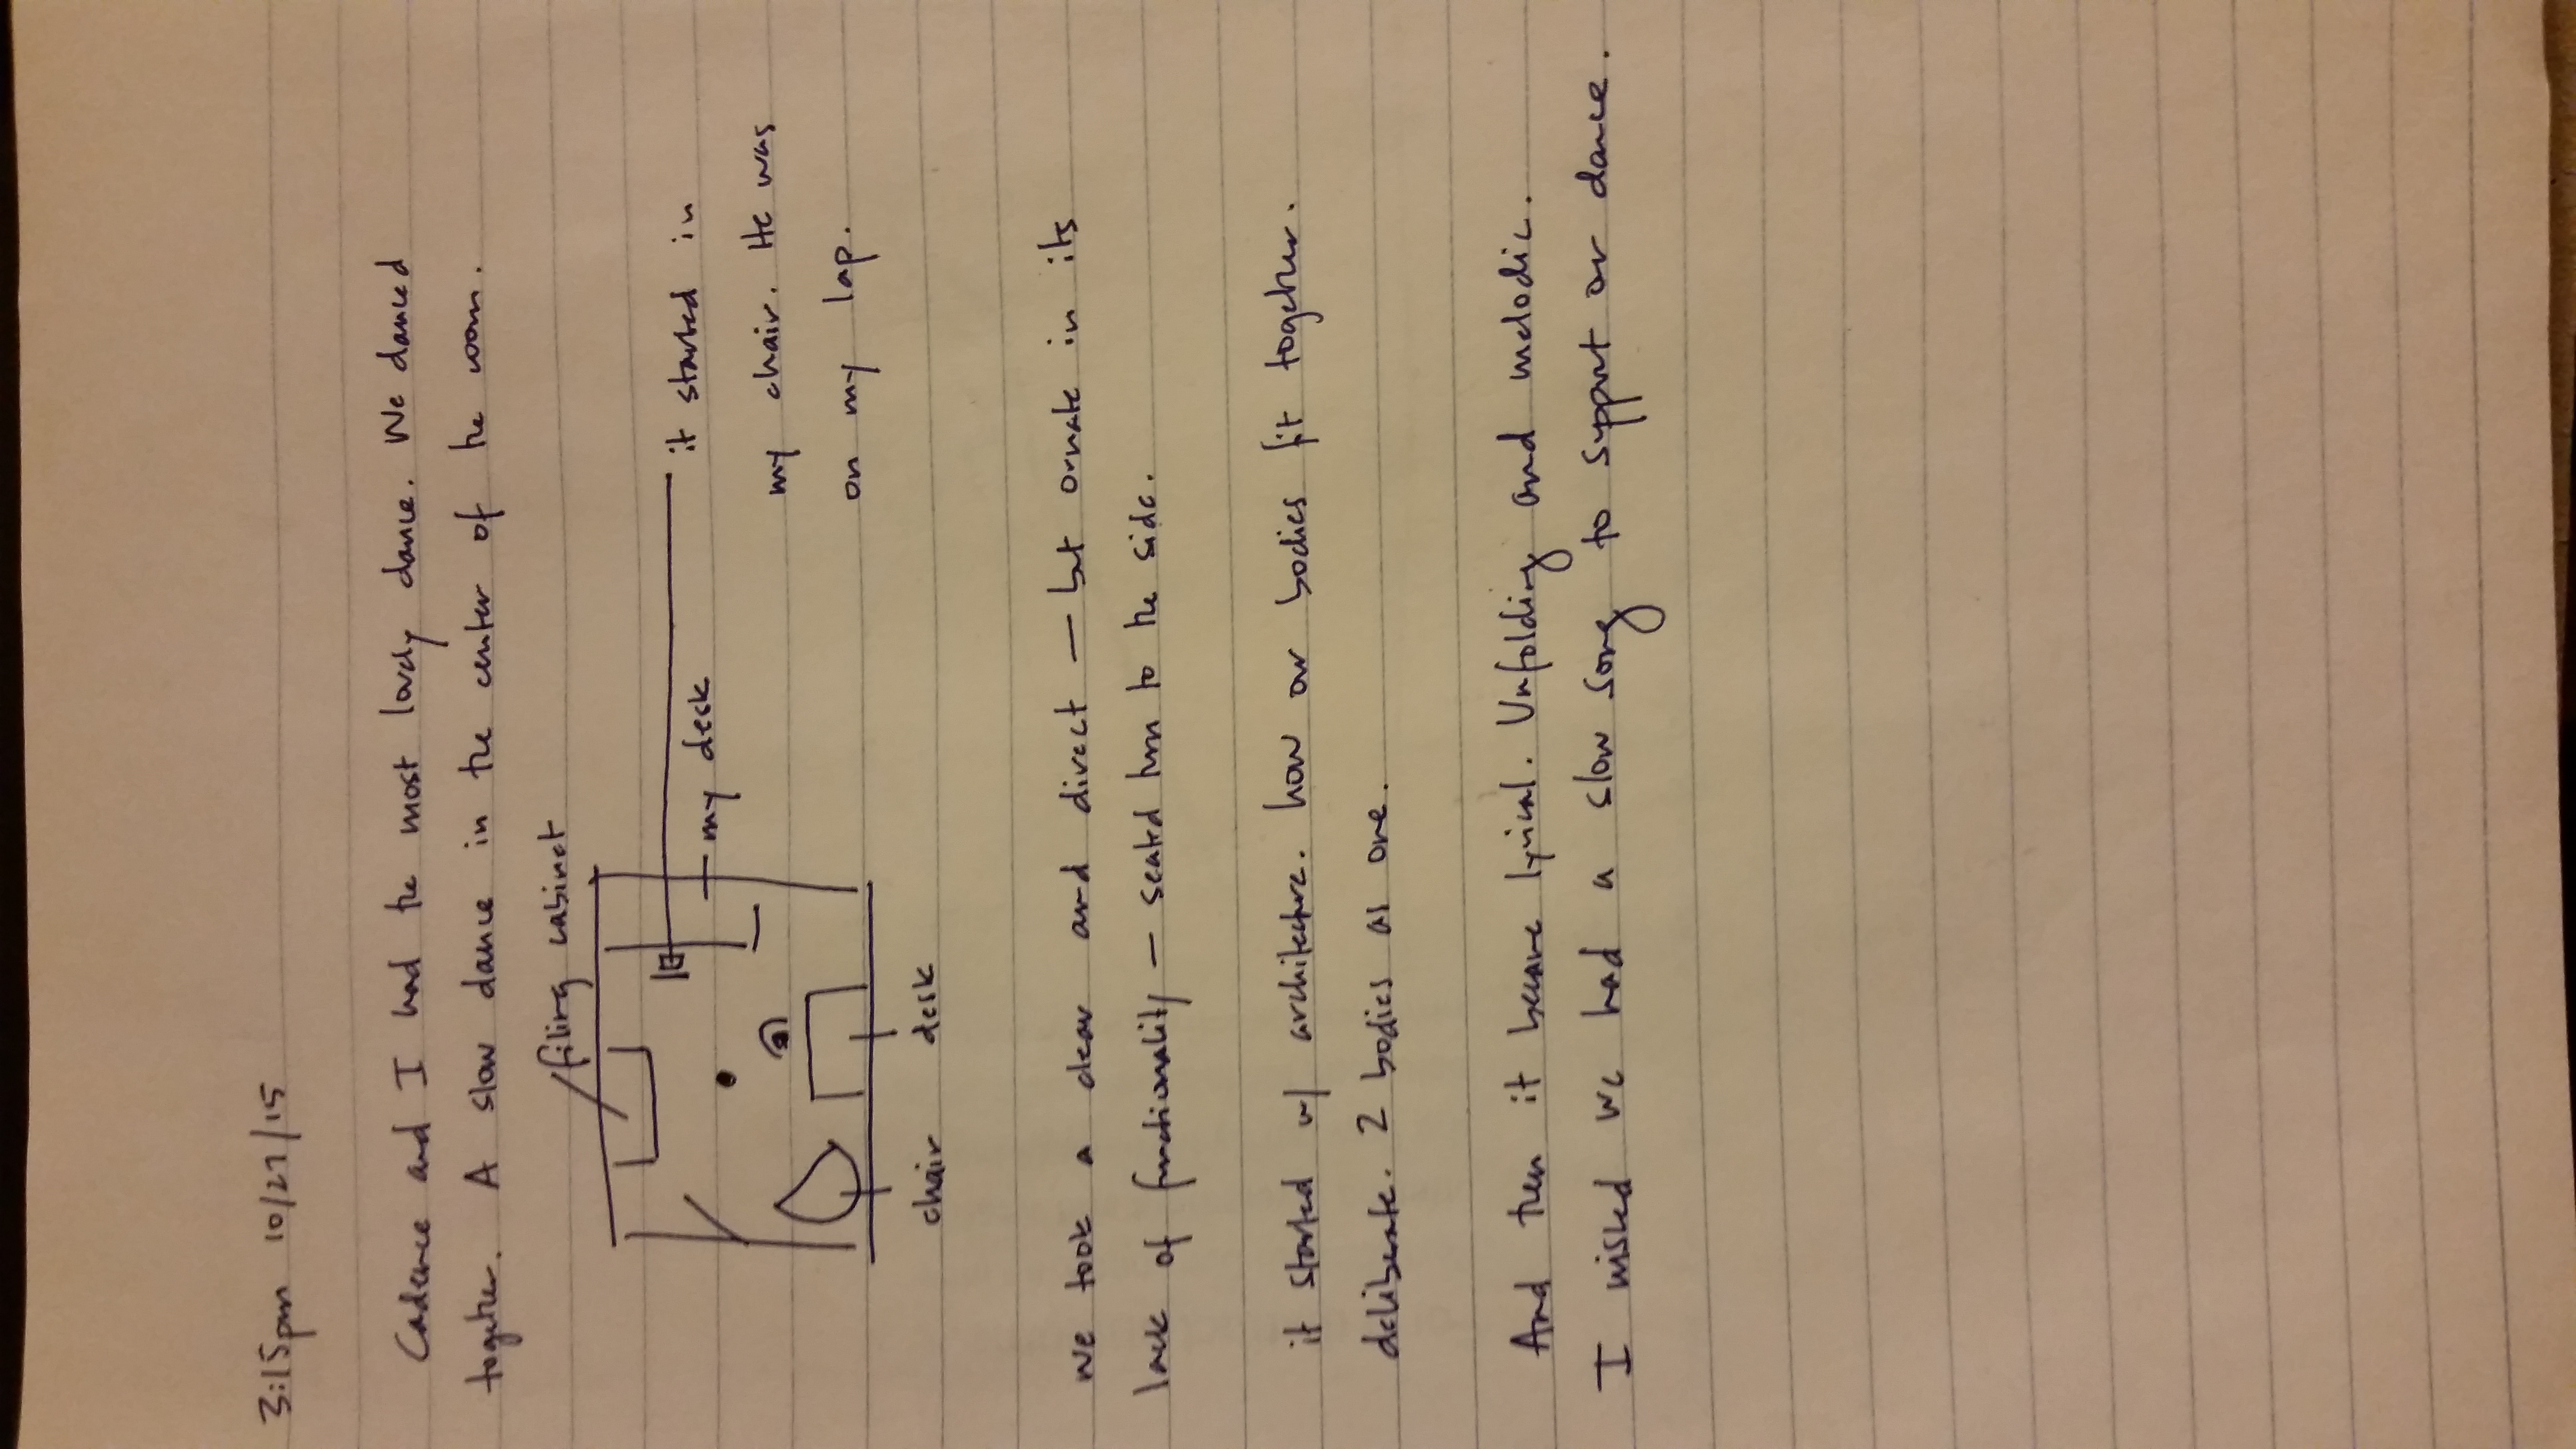 3:15pm 10/27/15
Cadence and I had the most lovely dance. We danced
together. A slow dance in the center of the room.
filing cabinet
it started in
my desk
my chair. He was
on my lap.
chair desk
we took a clear and direct — but ornate in its
lack of functionality — seated turn to the side.
it started w/ architecture. how our bodies fit together.
deliberate. 2 bodies as one.
And then it became lyrical. Unfolding and melodic.
I wished we had a slow song to support our dance.